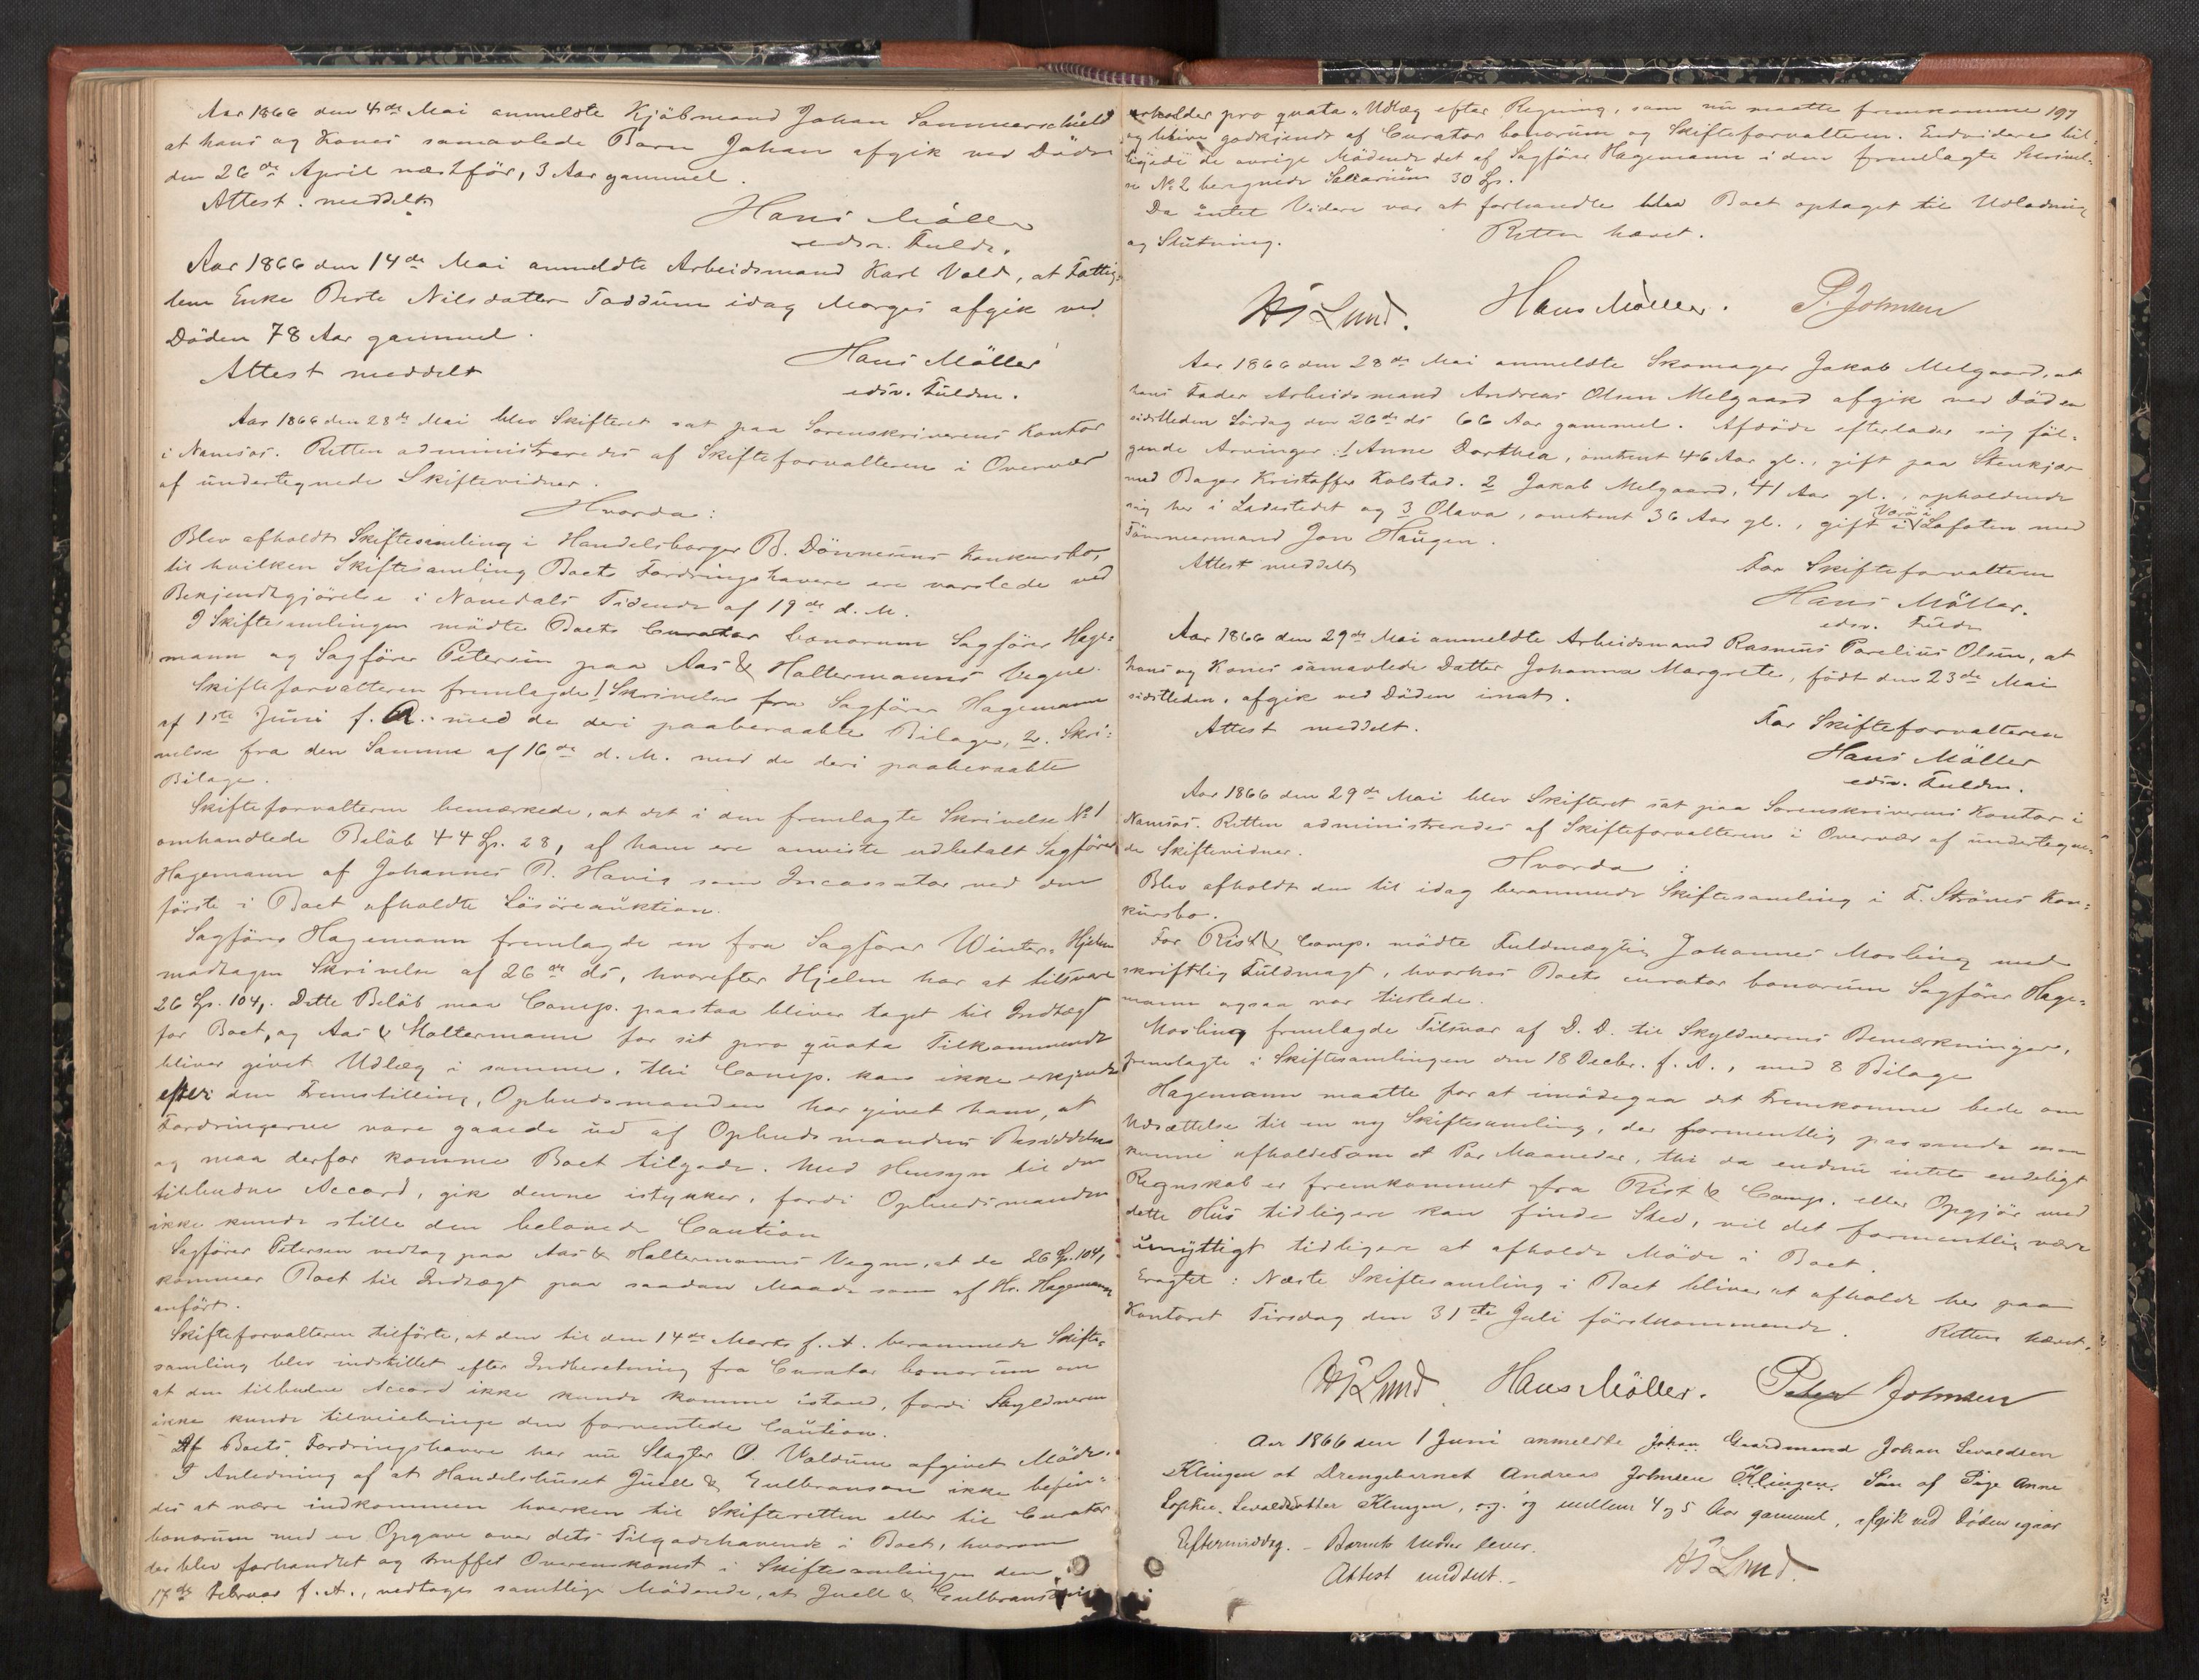 Aar 1866 den 4de Mai anmeldte Kjöbmand Johan Sommerschield
at hans og Kones samavlede Barn Johan afgik ved Döden
den 26de April næstför, 3 Aar gammel.
Attest meddelt
Hans Möller
edsv. Fuldm.
Aar 1866 den 14de Mai anmeldte Arbeidsmand Karl Vold, at Fattig-
lem Enke Berte Nilsdatter Taddum idag Morges afgik ved
Döden 78 Aar gammel.
Attest meddelt
Hans Möller
edsv. Fuldm.
Aar 1866 den 28de Mai blev Skifteret sat paa Sorenskriverens Kontor
i Namsos. Retten administreredes af Skifteforvalteren i Overvær
af undertegnede Skiftevidner.
Hvorda:
Blev afholdt Skiftesamling i Handelsborger B. Dönnesens Konkursbo,
til hvilken Skiftesamling Boets Fordringshavere ere varslede ved
Bekjendtgjörelse i Namdals Tidende af 19de d. M.
I Skiftesamlingen mödte Boets Curator bonorum Sagförer Hage-
mann og Sagförer Petersen paa Aas & Haltermanns Vegne.
Skifteforvalteren fremlagde 1 Skrivelse fra Sagförer Hagemann
af 1ste Juni f. A. med de deri paaberaabte Bilage, 2. Skri-
velse fra den Samme af 16de d. M. med de deri paaberaabte
Bilage.
Skifteforvalteren bemærkede, at det i den fremlagte Skrivelse No 1
omhandlede Belöb 44 Sp. 28, af ham ere anviste udbetalt Sagförer
Hagemann af Johannes B. Havig som Incassator ved den
förste i Boet afholdte Lösöreauktion.
Sagförer Hagemann fremlagde en fra Sagförer Winter-Hjelm
modtagen Skrivelse af 26de ds, hvorefter Hjelm har at tilsvare
26 Sp. 104,. Dette Belöb maa Comp. paastaa bliver taget til Indtægt
for Boet, og Aas & Haltermann for sit pro quota Tilkommende
bliver givet Udlæg i samme, thi Comp. kan ikke erkjende
efter den Fremstilling, Opbudsmanden har givet ham, at
Fordringerne vare gaaede ud af Opbudsmandens Besiddelse
og maa derfor komme Boet tilgode. Med Hensyn til den
tilbudne Accord, gik denne istykker, fordi Opbudsmanden
ikke kunde stille den belovede Caution
Sagförer Petersen vedtog paa Aas & Haltermanns Vegne, at de 26 Sp. 104,
kommer Boet til Indtægt paa saadan Maade som af Hr. Hagemann
anfört.
Skifteforvalteren tilförte, at den til den 14de Marts f. A. berammede Skifte-
samling blev indstillet efter Indberetning fra Curator bonorum om
at den tilbudne Accord ikke kunde komme istand, fordi Skyldneren
ikke kunde tilveiebringe den forventede Caution.
Af Boets Fordringshavere har nu Slagter O. Valdum afgivet Möde.
I Anledning af at Handelshuset Juell & Gulbranson ikke befin-
des at være indkommen hverken til Skifteretten eller til Curator
bonorum med en Opgave over dets Tilgodehavende i Boet, hvorom
der blev forhandlet og truffet Overenskomst i Skiftesamlingen den
17de Februar f. A., vedtages samtlige Mödende, at Juell & Gulbranson
erholder pro quota Udlæg efter Regning, som nu maatte fremkomme 197
og blive godkjendt af Curator bonorum og Skifteforvalteren. Endvidere bil-
ligede de övrige Mödende det af Sagförer Hagemann i den fremlagte Skrivel-
se No 2 beregnede Sallarium 30 Sp.
Da intet Videre var at forhandle blev Boet optaget til Udlodning
og Slutning.
Retten hævet.
HJ Lund. Hans Möller. P. Johnsen
Aar 1866 den 28de Mai anmeldte Skomager Jakob Melgaard, at
hans Fader Arbeidsmand Andreas Olsen Melgaard afgik ved Döden
sidstleden Lördag den 26de ds 66 Aar gammel. Afdöde efterlader sig föl-
gende Arvinger: 1 Anne Dorthea, omtrent 46 Aar gl., gift paa Stenkjær
med Bager Kristoffer Kolstad. 2 Jakob Melgaard, 41 Aar gl., opholdende
sig her i Ladestedet og 3 Olava, omtrent 36 Aar gl., gift i Værö i Lofoten med
Tömmermand Jon Haugen.
Attest meddelt
For Skifteforvalteren
Hans Möller.
edsv. Fuldm
Aar 1866 den 29de Mai anmeldte Arbeidsmand Rasmus Parelius Olsen, at
hans og Kones samavlede Datter Johanna Margrete, födt den 23de Mai
sidstleden, afgik ved Döden inat.
Attest meddelt.
For Skifteforvalteren
Hans Möller
edsv. Fuldm.
Aar 1866 den 29de Mai blev Skifteret sat paa Sorenskriverens Kontor i
Namsos. Retten administreredes af Skifteforvalteren i Overvær af undertegne-
de Skiftevidner.
Hvorda:
Blev afholdt den til idag berammede Skiftesamling i F. Ströms Kon-
kursbo.
For Rist & Comp. mödte Fuldmægtig Johannes Mosling med
skriftlig Fuldmagt, hvorhos Boets curator bonorum Sagförer Hage-
mann ogsaa var tilstede.
Mosling fremlagde Tilsvar af D. D. til Skyldnerens Bemærkninger,
fremlagte i Skiftesamlingen den 18 Decbr. f. A., med 8 Bilage
Hagemann maatte for at imödegaa det Fremkomne bede om
Udsættelse til en ny Skiftesamling, der formentlig passende
kunne afholdes om et Par Maaneder, thi da endnu intet endeligt
Regnskab er fremkommet fra Rist & Comp. eller Opgjör med
dette Hus tidligere kan finde Sted, vil det formentlig være
unyttigt tidligere at afholde Möde i Boet.
Eragtet: Næste Skiftesamling i Boet bliver at afholde her paa
Kontoret Tirsdag den 31te Juli förstkommende.
Retten hævet.
HJ Lund. Hans Möller. Peter Johnsen
Aar 1866 den 1 Juni anmeldte Johan Gaardmand Johan Sevaldsen
Klingen at Drengebarnet Andreas Johnsen Klingen, Sön af Pige Anne
Sophie Sevaldsdatter Klingen, og mellem 4 og 5 Aar gammel, afgik ved Döden igaar
Eftermiddag. - Barnets Moder lever.
Attest meddelt.
HJ Lund.